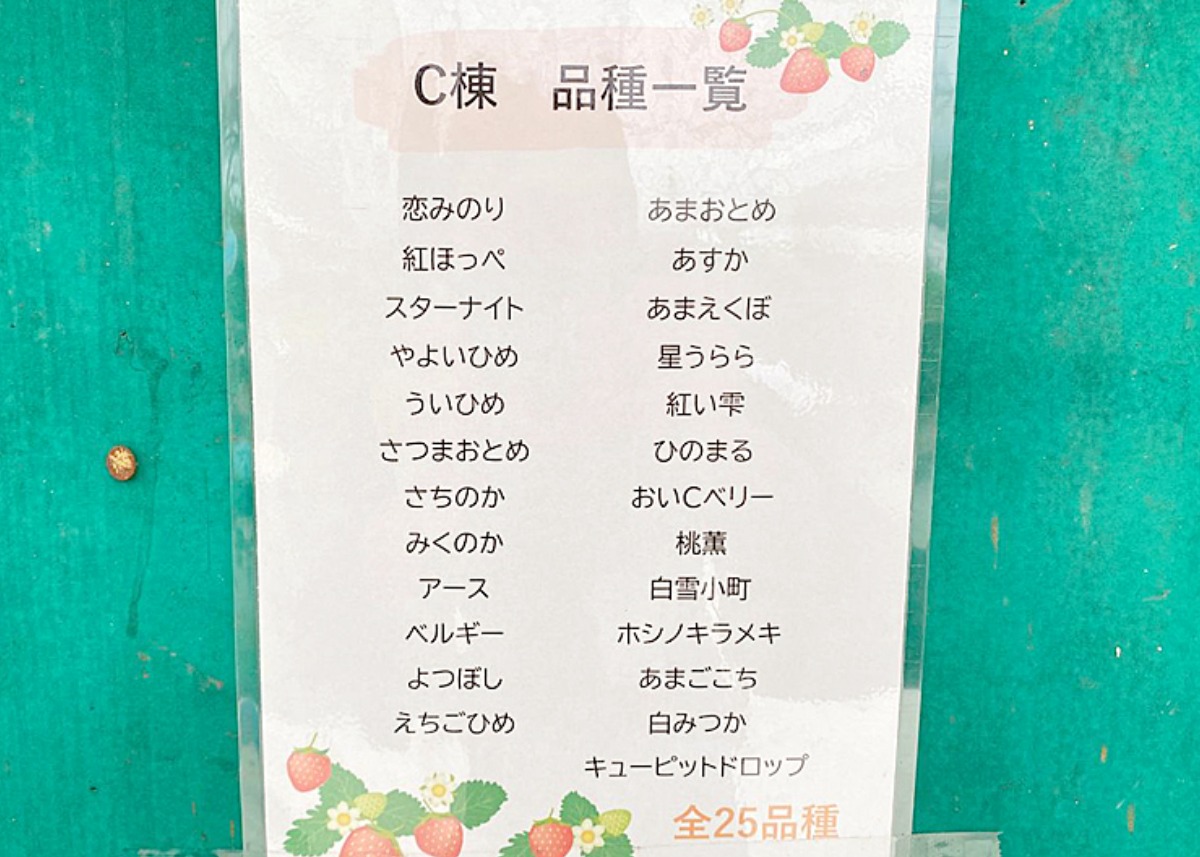 C棟 品種一覧
恋みのり
紅ほっぺ
スターナイト
やよいひめ
ういひめ
さつまおとめ
さちのか
みくのか
アース
ベルギー
よつぼし
えちごひめ
あまおとめ
あすか
あまえくぼ
星うらら
紅い雫
ひのまる
おいCベリー
桃薫
白雪小町
ホシノキラメキ
あまごこち
白みつか
キューピットドロップ
全25品種